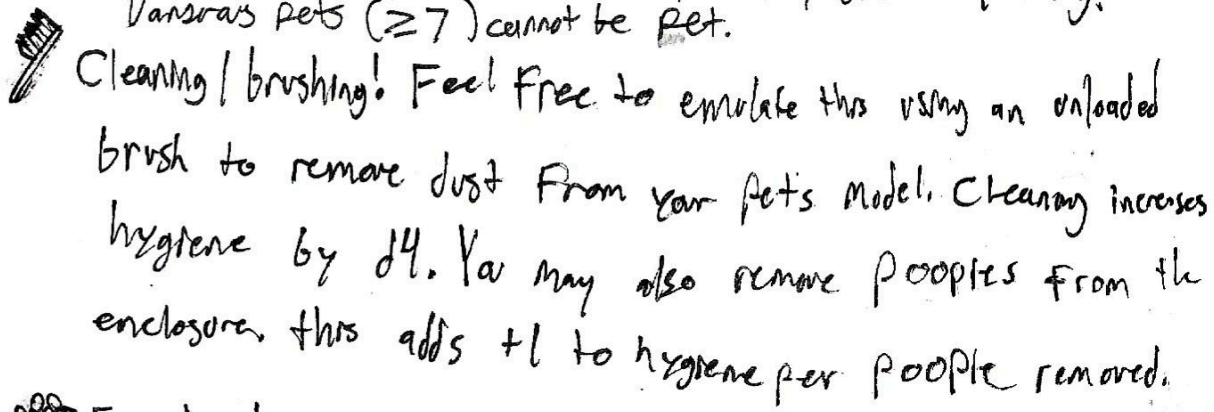 pets (≥7) cannot be pet.
Cleaning / brushing! Feel free to emulate this using an unloaded
brush to remove dust from your pet's model. Cleaning increases
hygiene by d4. You may also remove poopies from the
enclosure, this adds +1 to hygiene per poopie removed.